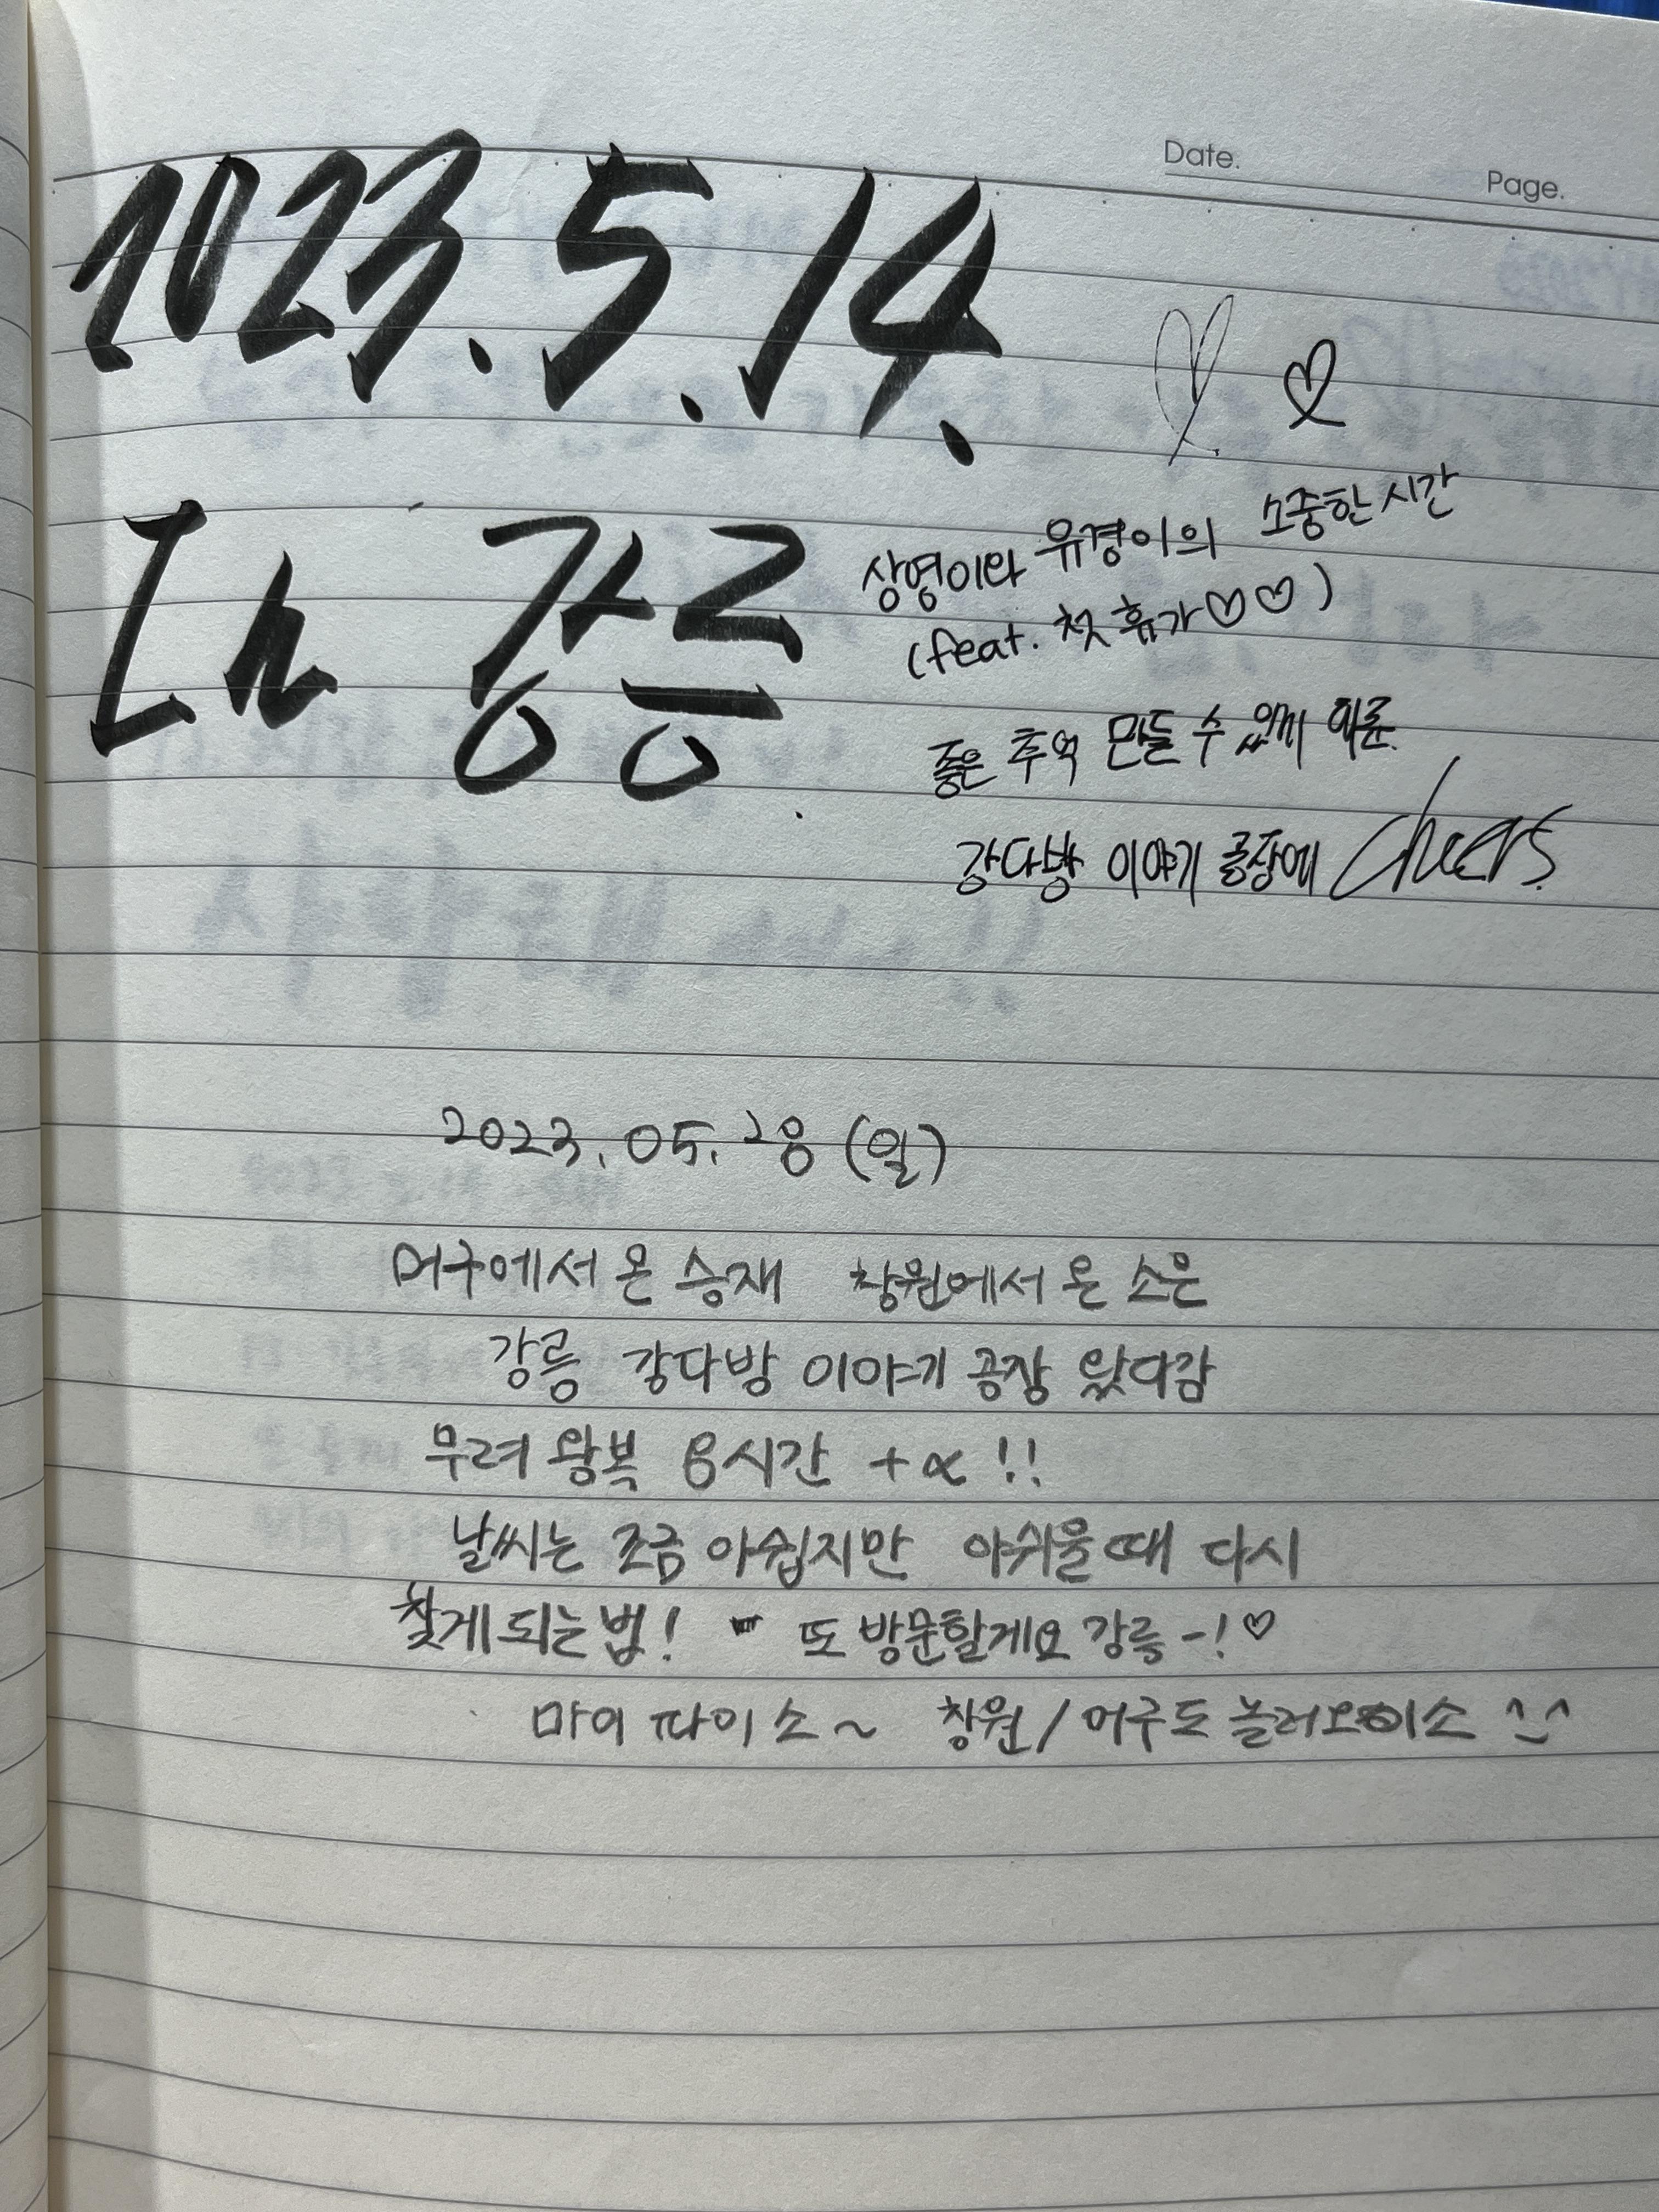 Date.
Page.
2023.5.14.
In 강릉
상영이와 유경이의 소중한 시간
(feat. 첫 휴가♡♡)
좋은 추억 만들 수 있게 해준
강다방 이야기 공장에 cheers.
2023.05.28 (일)
대구에서 온 승재 창원에서 온 소은
강릉 강다방 이야기 공장 왔다감
무려 왕복 8시간 +α !!
날씨는 조금 아쉽지만 아쉬울 때 다시
찾게 되는 법! 또 방문할게요 강릉-!♡
마이 파이소~ 창원/대구도 놀러오이소 ^_^